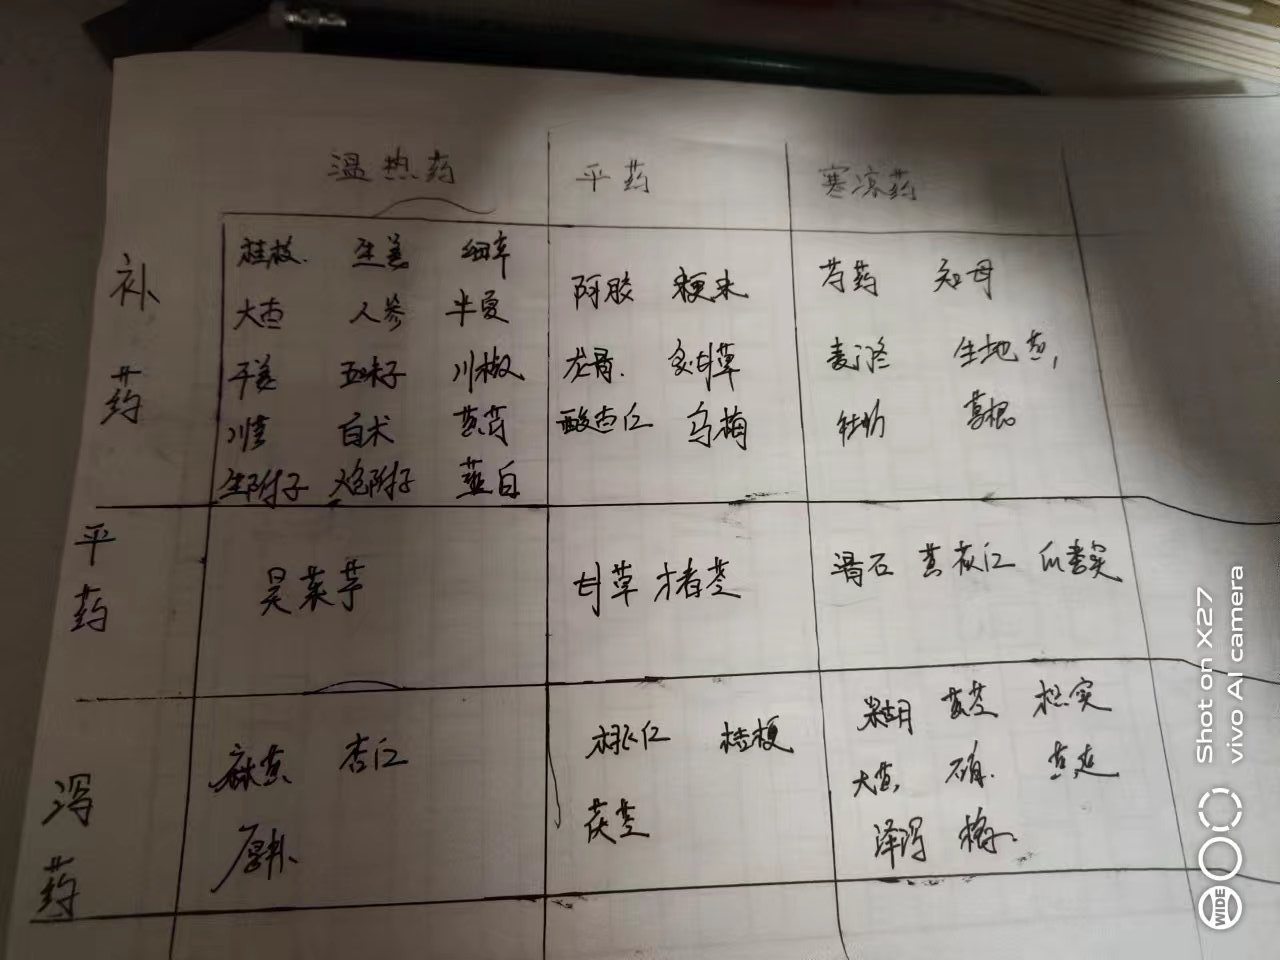 温热药 平药 寒凉药
补药
桂枝. 生姜 细辛
大枣 人参 半夏
干姜 五味子 川椒
白术
生附子 炮附子 薤白
阿胶 粳米
龙骨. 炙甘草
酸枣仁 乌梅
芍药 知母
麦门冬 生地黄,
牡蛎 葛根
平药
吴茱萸
甘草 猪苓
滑石 瓜蒌实
泻药
麻黄 杏仁
厚朴
桃仁 桔梗
茯苓
柴胡 黄芩 枳实
大黄, 黄连
泽泻
Shot on X27
vivo AI camera
WIDE